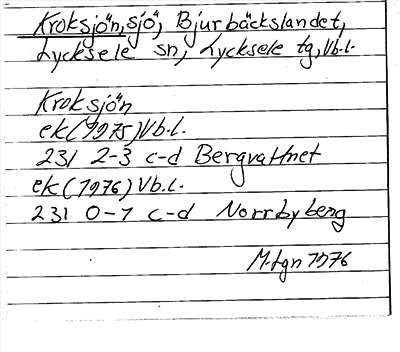 Kroksjön, sjö, Bjurbäckslandet,
Lycksele sn, Lycksele tg, Vb.l.
Kroksjön
ek (1975) Vb.l.
231 2-3 c-d Bergvattnet
ek (1976) Vb.l.
231 0-1 c-d Norrbyberg
M.tgn 1976